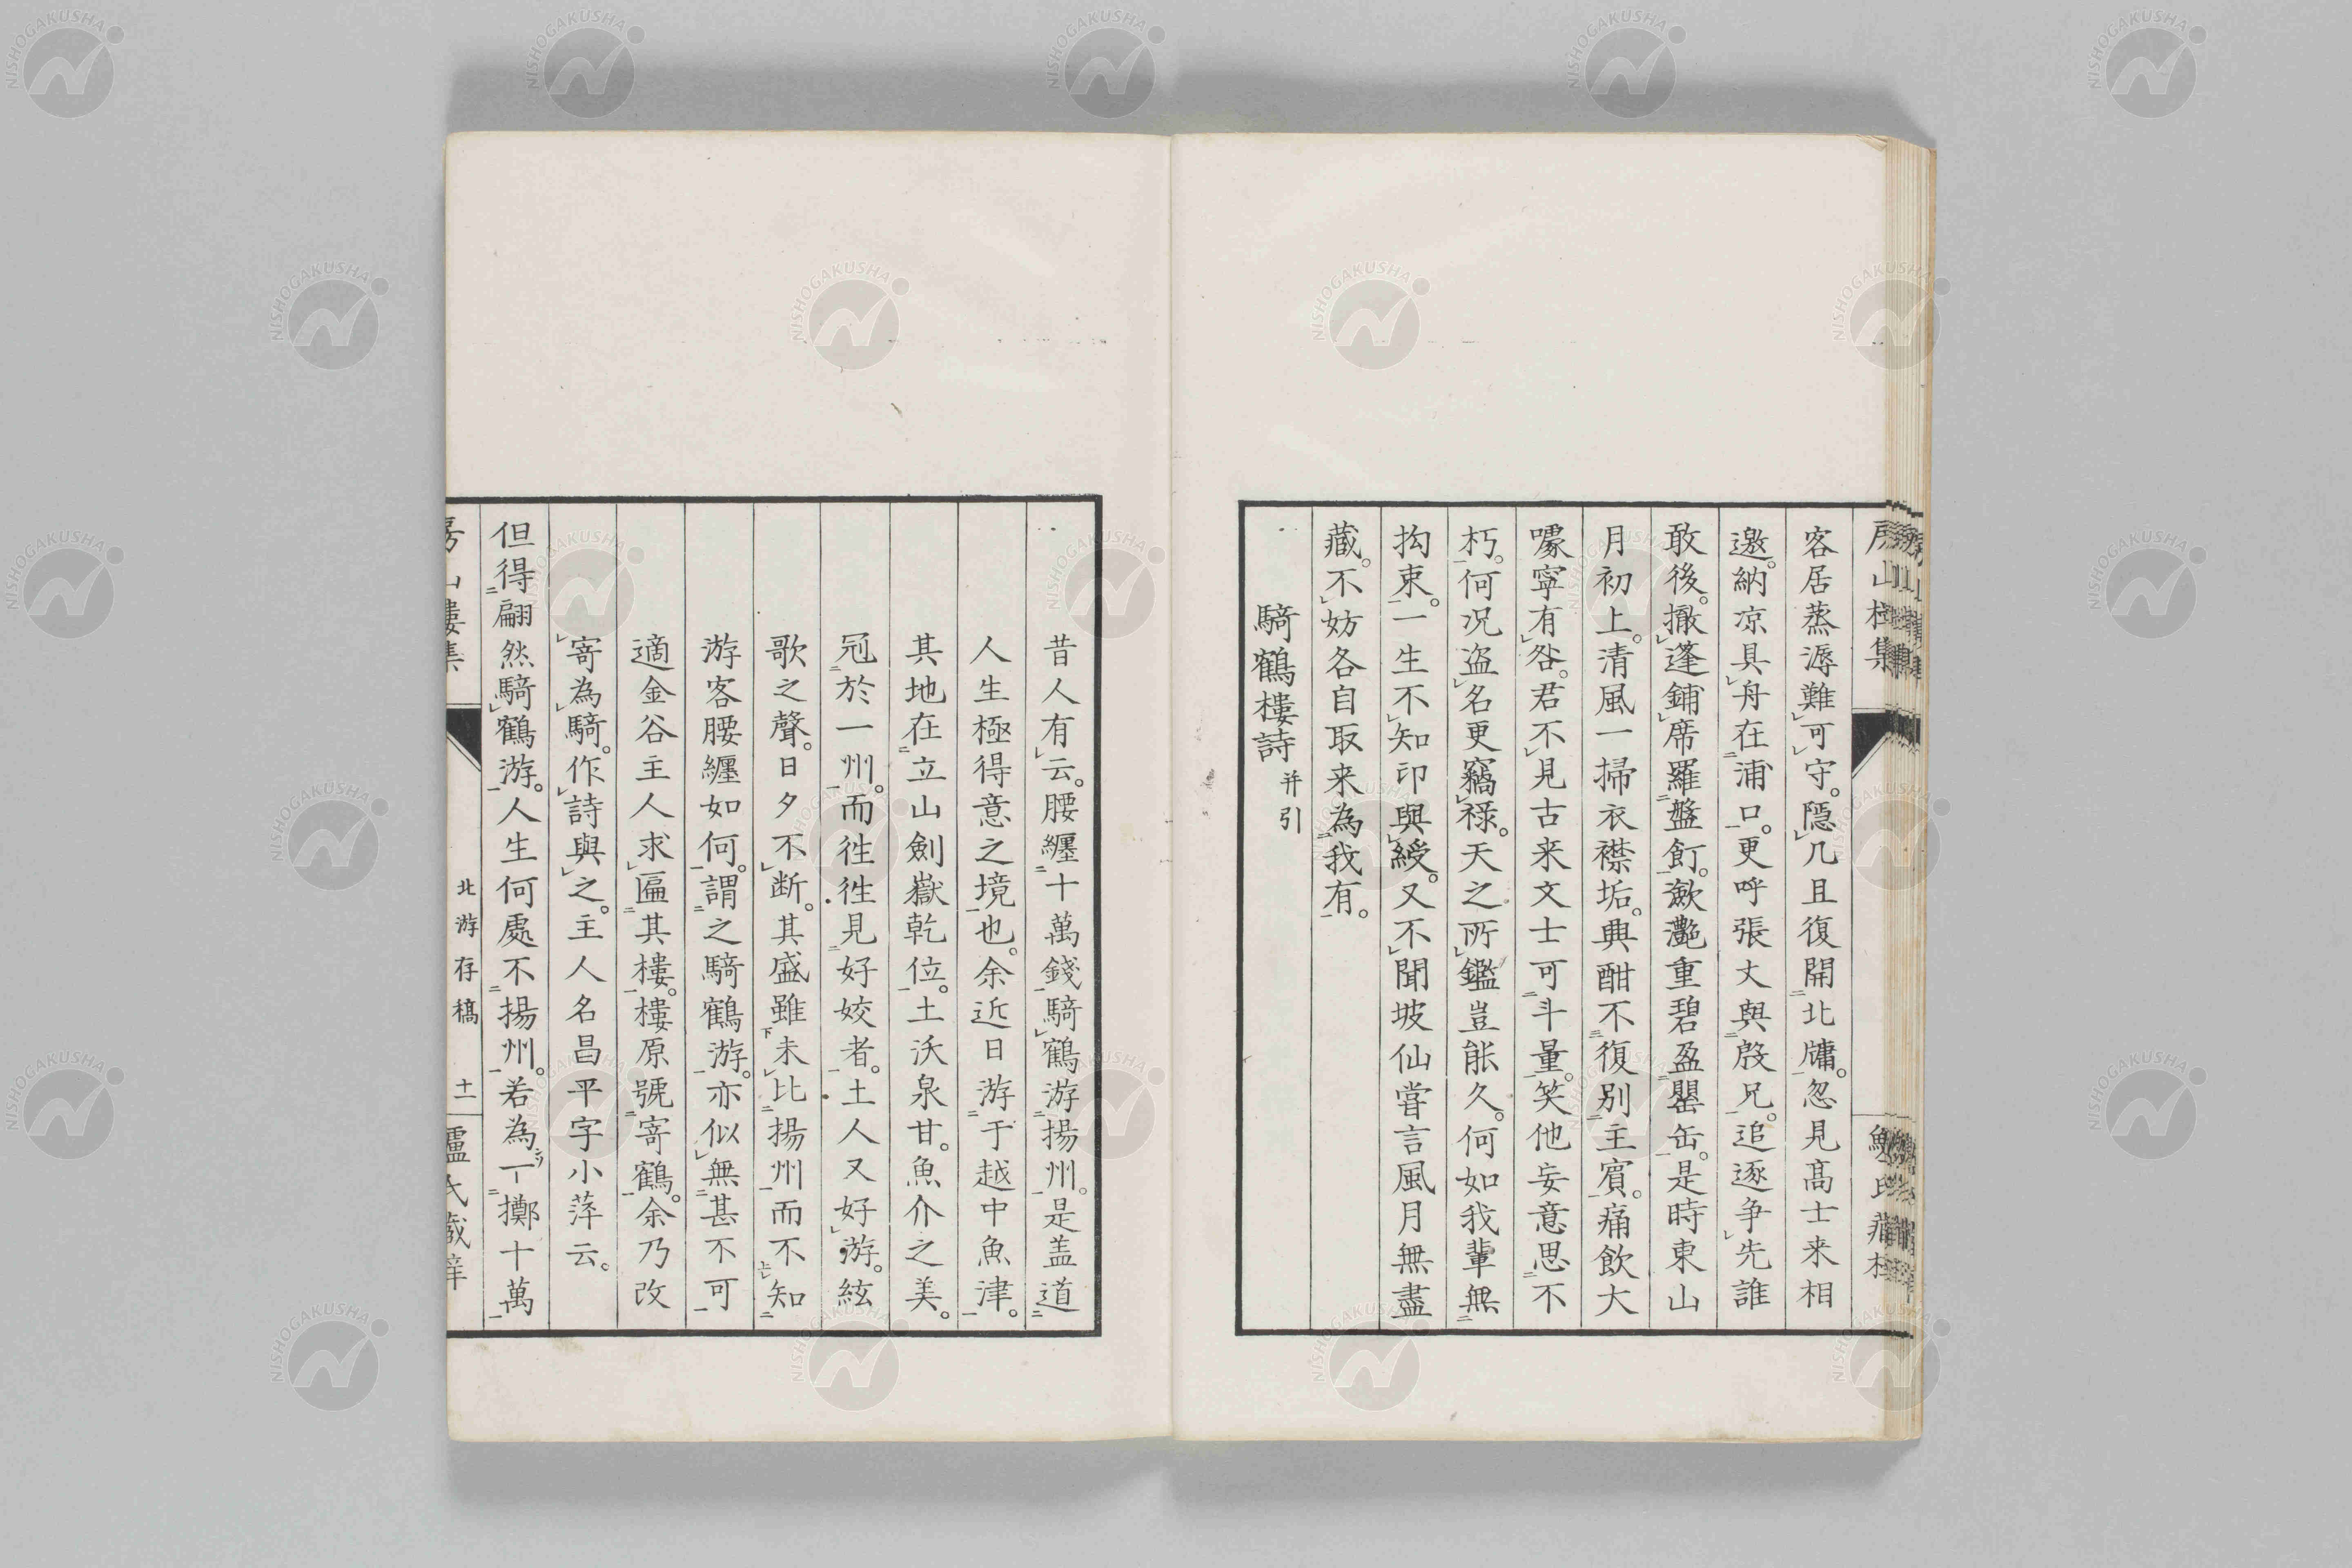 客居蒸溽難可守。隱几且復開北牖。忽見髙士来相
邀。納凉具舟在浦口。更呼張丈與殷兄。追逐争先誰
敢後。撤蓬鋪席羅盤飣。瀲灔重碧盈罌缶。是時東山
月初上。清風一掃衣襟垢。興酣不復別主賓。痛飲大
噱寧有咎。君不見古来文士可斗量。笑他妄意思不
朽。何况盗名更竊禄。天之所鑑豈能久。何如我輩無
拘束。一生不知印與綬。又不聞坡仙嘗言風月無盡
藏。不妨各自取来為我有。
騎鶴樓詩并引
昔人有云。腰纒十萬錢騎鶴游揚州。是盖道
人生極得意之境也。余近日游于越中魚津。
其地在立山劍嶽乾位。土沃泉甘。魚介之美。
冠於一州。而徃徃見好姣者。土人又好游。絃
歌之聲。日夕不断。其盛雖未比揚州而不知
游客腰纒如何。謂之騎鶴游。亦似無甚不可
適金谷主人求匾其樓。樓原號寄鶴。余乃改
寄為騎。作詩與之。主人名昌平字小萍云。
但得翩然騎鶴游。人生何處不揚州。若為一擲十萬
房山樓集
北游存稿
十一
NISHOGAKUSHA